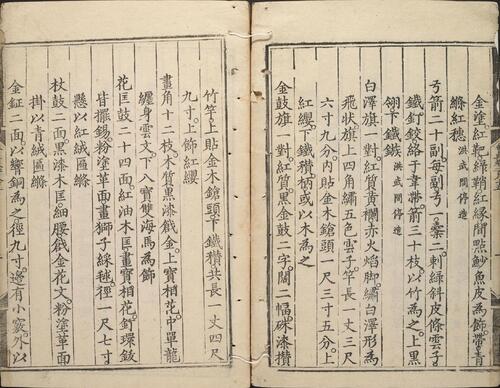 金塗紅靶綠鞘紅緣間點魦魚皮為飾帶青
絛紅穗洪武間停造
弓箭二十副每副弓一張二刺綠斜皮條雲子
鐵釘鉸絡子韋帶箭三十枝以竹為之上黑
翎下鐵鏃洪武間停造
白澤旗一對紅質黃襴赤火焰脚繡白澤形為
飛狀旗上四角繡五色雲子竿長一丈三尺
六寸九分内貼金木鎗頭一尺三寸五分上
紅纓下鐵䥫柄或以木為之
金鼓旗一對紅質黑金鼓二字闊二幅硃漆攢
竹竿上貼金木鎗頭下鐵䥫共長一丈四尺
九寸上飾紅纓
畫角十二枝木質黑漆戧金上寶相花中單龍
纏身雲文下八寶雙海馬為飾
花匡鼓二十四面紅油木匡畫寶相花釘環鈸
皆擺錫粉塗革面畫獅子綵毬徑一尺七寸
懸以紅絨匾絛
杖鼓二面黑漆木匡細腰戧金花文粉塗革面
掛以青絨匾絛
金鉦二面以響銅為之徑九寸邊有小竅外以